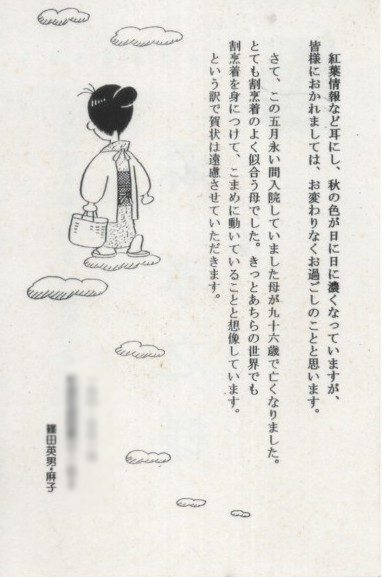 紅葉情報など耳にし、秋の色が日に日に濃くなっていますが、
皆様におかれましては、お変わりなくお過ごしのことと思います。
さて、この五月永い間入院していました母が九十六歳で亡くなりました。
とても割烹着のよく似合う母でした。きっとあちらの世界でも
割烹着を身につけて、こまめに動いていることと想像しています。
という訳で賀状は遠慮させていただきます。
篠田英男・麻子